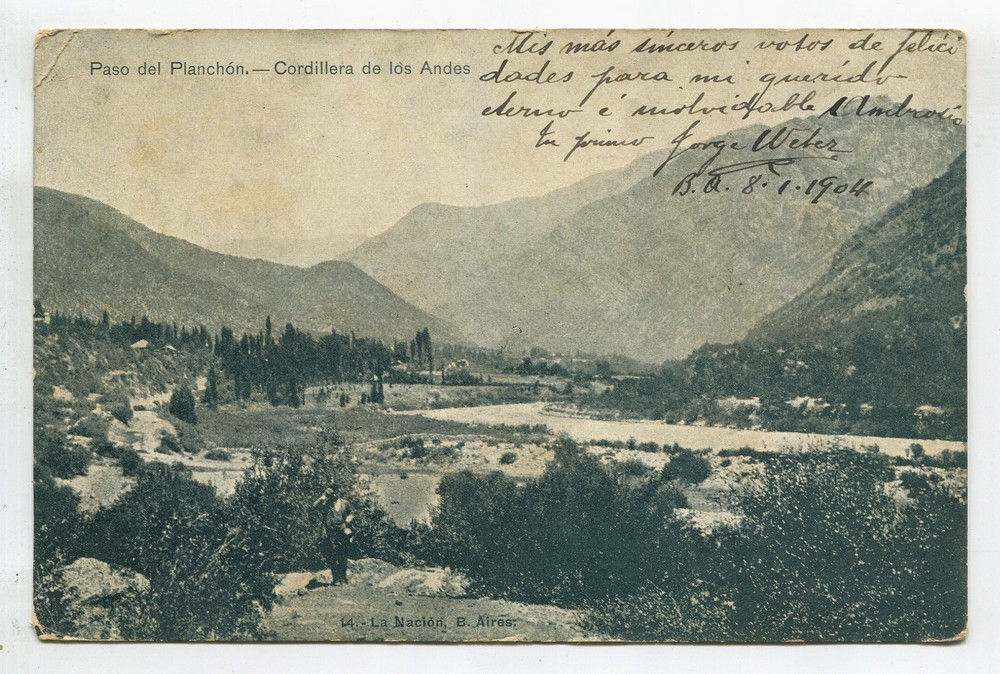 Paso del Planchón. — Cordillera de los Andes
Mis más sinceros votos de felici
dades para mi querido
eterno é inolvidable Ambrosio
tu primo Jorge Weber
B.A. 8.1.1904
14. - La Nación, B. Aires.